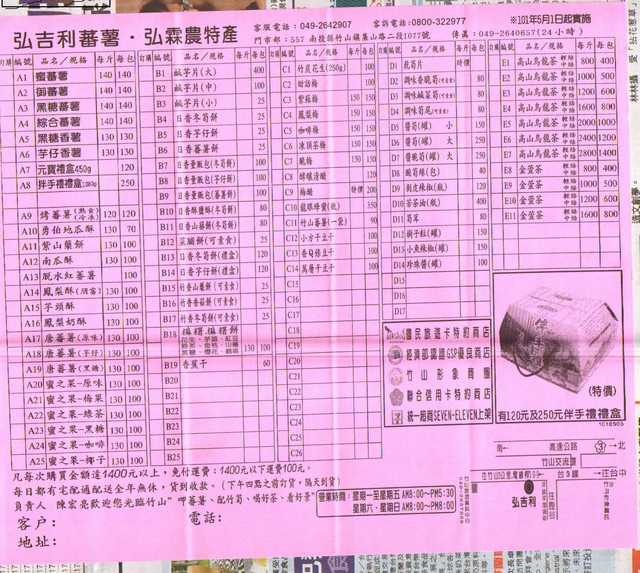 弘吉利蕃薯・弘霖農特產
客服電話：049-2642907 客訴電話：0800-322977 ※101年5月1日起實施
門市部：557 南投縣竹山鎮集山路二段1077號 傳真：049-2640657(24小時)
訂購 編號 品名／規格 每斤 每包
A1 蜜蕃薯 140 140
A2 御蕃薯 140 140
A3 黑糖蕃薯 140 140
A4 綜合蕃薯 140 140
A5 黑糖香薯 130 130
A6 芋仔香薯 130 130
A7 元寶禮盒450g 120
A8 拌手禮禮盒 250
A9 烤蕃薯(熱食/冷凍) 120 120
A10 勇伯地瓜酥 70
A11 紫山藥餅 130 100
A12 南瓜酥 130 100
A13 脫水紅蕃薯 100
A14 鳳梨酥 130 100
A15 芋頭酥 130 100
A16 鳳梨奶酥 130 100
A17 唐蕃薯(原味) 130 100
A18 唐蕃薯(芋仔) 130 100
A19 唐蕃薯(黑糖) 130 100
A20 蜜之果-原味 130 100
A21 蜜之果-梅果 130 100
A22 蜜之果-綠茶 130 100
A23 蜜之果-黑糖 130 100
A24 蜜之果-咖啡 130 100
A25 蜜之果-椰子 130 100
訂購 編號 品名／規格 每斤 每包
B1 鹹芋片(大) 400
B2 鹹芋片(中) 100
B3 鹹芋片(小) 25
B4 日香冬筍餅 25
B5 日香芋仔餅 25
B6 日香蕃薯餅 25
B7 日香量販包(冬筍餅) 100
B8 日香量販包(芋仔餅) 100
B9 日香量販包(蕃薯餅) 100
B10 日香酥鹽酥(冬筍餅)
B11 日香山藤餅(冬筍餅)
B12 菜脯餅(可素食) 25
B13 日香冬筍餅(禮盒) 120
B14 日香芋仔餅(禮盒) 120
B15 竹香山藥餅(可素食) 25
B16 竹香香菇餅(可素食) 25
B17 竹香冬筍餅(可素食) 25
B18 麻糬.麻糬餅
130 100
B19 香蕉干 60
B20
B21
B22
B23
B24
B25
訂購 編號 品名／規格 每斤 每包
C1 竹炭花生(250g) 100
C2 甜話梅 100
C3 紫蘇梅 150 150
C4 鳳梨梅 150 150
C5 咖啡梅 150 150
C6 凍頂茶梅 150 150
C7 脆梅 150 150
C8 酵釀清醋
C9 梅醋 特價 200
C10 龍眼蜂蜜(瓶) 350
C11 竹山蕃薯(一袋) 90
C12 小方干豆干 100
C13 香Q條豆干 100
C14 萬層干豆干 100
C15
C16
C17
C18
C19
C20
C21
C22
C23
C24
C25
訂購 編號 品名／規格 每斤 每包
D1 乾筍片 時價
D2 調味香脆筍(可素食) 80
D3 調味鹹菜筍(可素食) 80
D4 調味筍尾(可素食) 80
D5 醬筍(罐) 小
D6 醬筍(罐) 大
D7 醬脆筍(罐) 大
D8 酸筍絲(包) 40
D9 剝皮辣椒(瓶)
D10 苦茶油(瓶)
D11 筍茸 80
D12 樹子粒(罐)
D13 小魚辣椒(罐)
D14 珍珠醬(罐)
D15
D16
D17
訂購 編號 品名／規格 每斤
E1 高山烏龍茶 輕焙 中焙 800 400
E2 高山烏龍茶 輕焙 中焙 1000 500
E3 高山烏龍茶 輕焙 中焙 1200 600
E4 高山烏龍茶 輕焙 中焙 1600 800
E5 高山烏龍茶 輕焙 中焙 2000 1000
E6 高山烏龍茶 輕焙 中焙 2400 1200
E7 高山烏龍茶 輕焙 中焙 2800 1400
E8 金萱茶 輕焙 中焙 800 400
E9 金萱茶 輕焙 中焙 1000 500
E10 金萱茶 輕焙 中焙 1200 600
E11 金萱茶 輕焙 中焙 1600 800
國民旅遊卡特約商店
經濟部認證GSP優良商店
竹山形象商圈
聯合信用卡特約商店
統一超商SEVEN-ELEVEN上架
伴手禮
(特價)
有120元及250元伴手禮禮盒
1010503
凡每次購買金額達1400元以上，免付運費；1400元以下運費100元。
每日都有宅配通配送全年無休，貨到收款。(下午四點之前訂貨，隔天到貨)
負責人 陳宏堯歡迎您光臨竹山"呷蕃薯、配竹筍、喝好茶、看好景"
營業時間：星期一至星期五 AM8:00～PM5:30
星期六、星期日 AM8:00～PM8:00
客戶： 電話：
地址：
南 高速公路 ③ 北
竹山交流道
往竹山 台3線 往台中
弘吉利